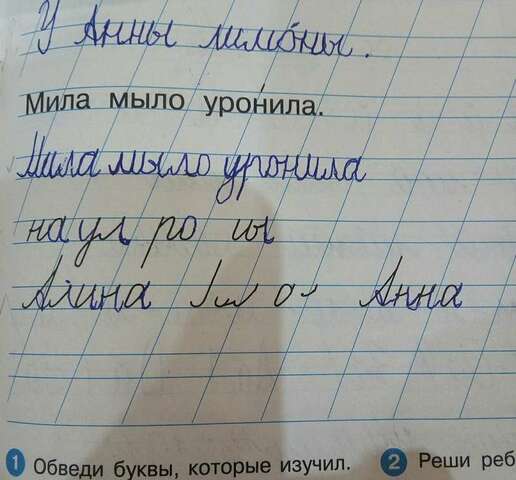 У Анны лимоны.
Мила мыло уронила.
Мила мыло уронила
на ул ро сы
Алина Анна
1 Обведи буквы, которые изучил. 2 Реши реб